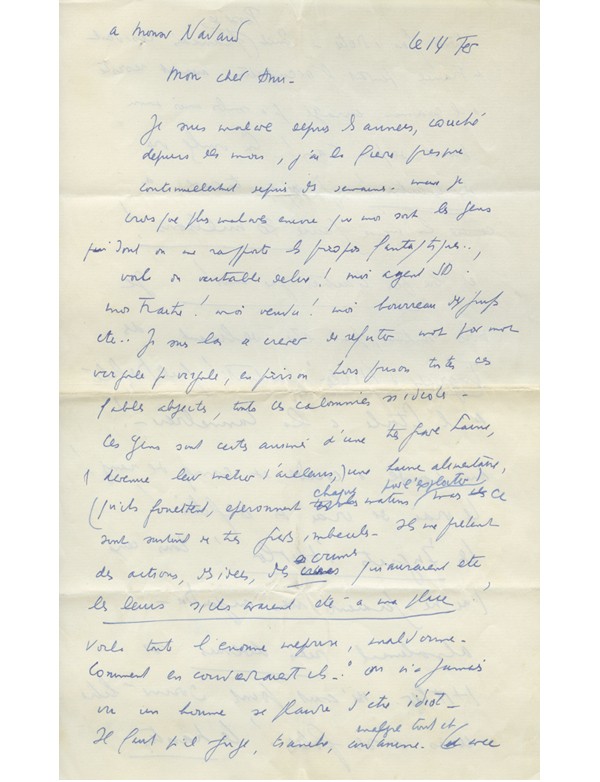 a Monsr Naud
le 14 Fev
Mon cher Ami -
Je suis malade depuis 5 années, couché
depuis des mois, j'ai la fièvre presque
continuellement depuis des semaines - mais je
crois que plus malades encore que moi sont les gens
dont on me rapporte les propos fantastiques..,
voila du veritable delire! moi agent SD.
moi traitre! moi vendu! moi bourreau de juifs
etc.. Je suis las a crever de refuter mot par mot
virgule p virgule, en prison hors prison toutes ces
fables abjectes, toutes ces calomnies si idiotes -
Ces gens sont certes animés d'une très grave haine,
devenue leur metier d'ailleurs, une haine alimentaire,
(qu'ils fouettent, eperonnent chaque matin pour l'exploiter!) mais ce
sont surtout de très gros imbeciles. Ils me prêtent
des actions, des idees, des crimes qui auraient été
les leurs s'ils avaient été a ma place
Voila tout l'enorme meprise, maldonne -
Comment en conviendraient ils -? On n'a jamais
vu un homme se plaindre d'etre idiot -
Il faut qu'il juge, tranche, condamne malgré tout et